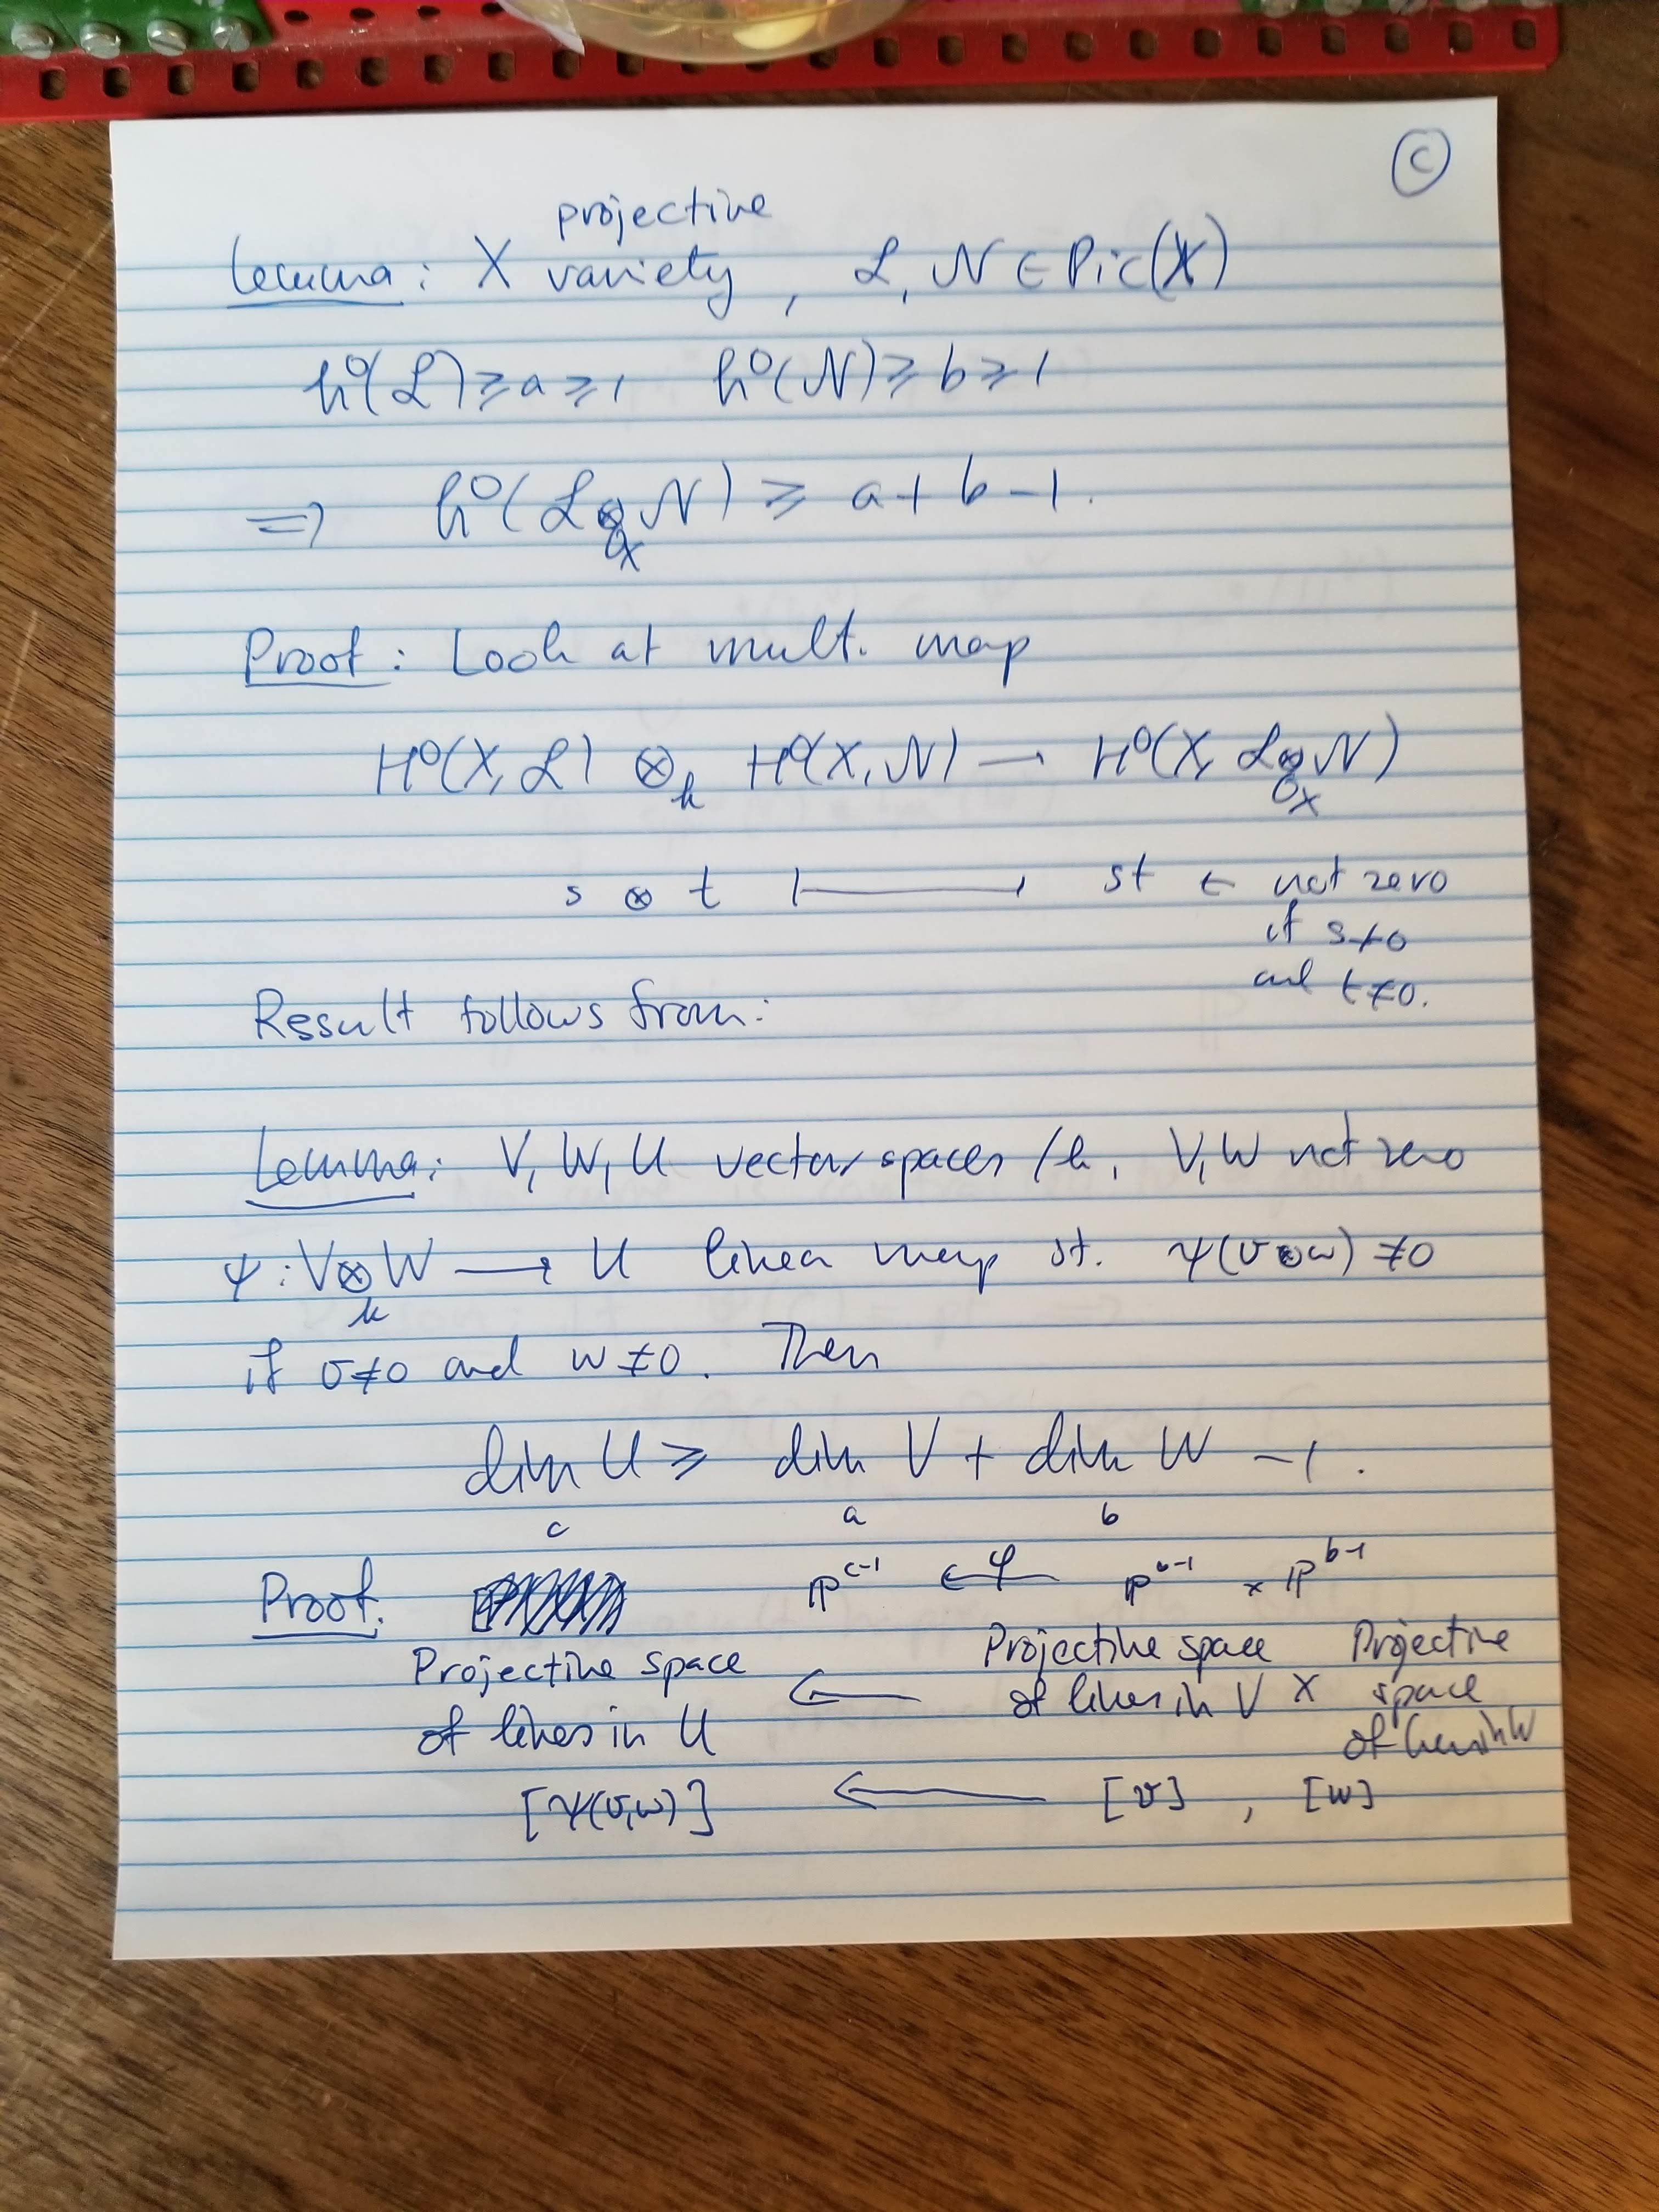 C
projective
Lemma: X variety, ℒ, 𝒩 ∈ Pic(X)
h⁰(ℒ) ≥ a ≥ 1 h⁰(𝒩) ≥ b ≥ 1
⇒ h⁰(ℒ ⊗ 𝒩) ≥ a + b - 1.
O_X
Proof: Look at mult. map
H⁰(X, ℒ) ⊗_k H⁰(X, 𝒩) → H⁰(X, ℒ ⊗ 𝒩)
O_X
s ⊗ t ↦ st ← not zero
if s≠0
and t≠0.
Result follows from:
Lemma: V, W, U vector spaces /k, V, W not zero
ψ: V ⊗ W → U linear map st. ψ(v⊗w) ≠ 0
k
if v≠0 and w≠0. Then
dim U ≥ dim V + dim W - 1.
c a b
Proof. ℙ^{c-1} ←φ ℙ^{a-1} × ℙ^{b-1}
Projective space ← Projective space × Projective
of lines in U of lines in V space
of lines in W
[ψ(v,w)] ← [v], [w]